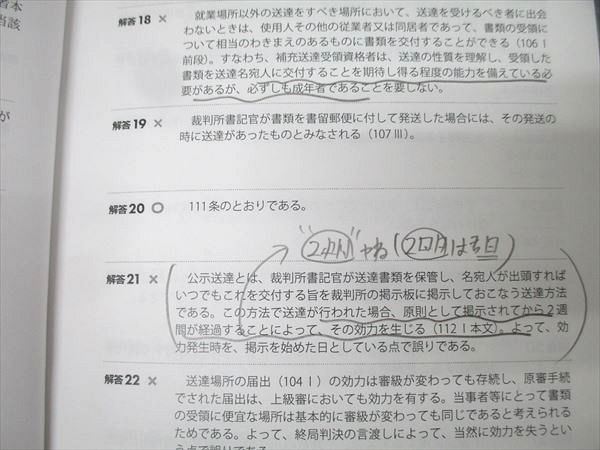 者本
当該
が
解答18 × 就業場所以外の送達をすべき場所において、送達を受けるべき者に出会
わないときは、使用人その他の従業者又は同居者であって、書類の受領に
ついて相当のわきまえのあるものに書類を交付することができる（106Ⅰ
前段）。すなわち、補充送達受領資格者は、送達の性質を理解し、受領した
書類を送達名宛人に交付することを期待し得る程度の能力を備えている必
要があるが、必ずしも成年者であることを要しない。
解答19 × 裁判所書記官が書類を書留郵便に付して発送した場合には、その発送の
時に送達があったものとみなされる（107Ⅲ）。
解答20 ○ 111条のとおりである。
2回目は翌日
解答21 × 公示送達とは、裁判所書記官が送達書類を保管し、名宛人が出頭すれば
いつでもこれを交付する旨を裁判所の掲示板に掲示しておこなう送達方法
である。この方法で送達が行われた場合、原則として掲示されてから2週
間が経過することによって、その効力を生じる（112Ⅰ本文）。よって、効
力発生時を、掲示を始めた日としている点で誤りである。
解答22 × 送達場所の届出（104Ⅰ）の効力は審級が変わっても存続し、原審手続
でされた届出は、上級審においても効力を有する。当事者等にとって書類
の受領に便宜な場所は基本的に審級が変わっても同じであると考えられる
ためである。よって、終局判決の言渡しによって、当然に効力を失うとい
う点で誤りである。